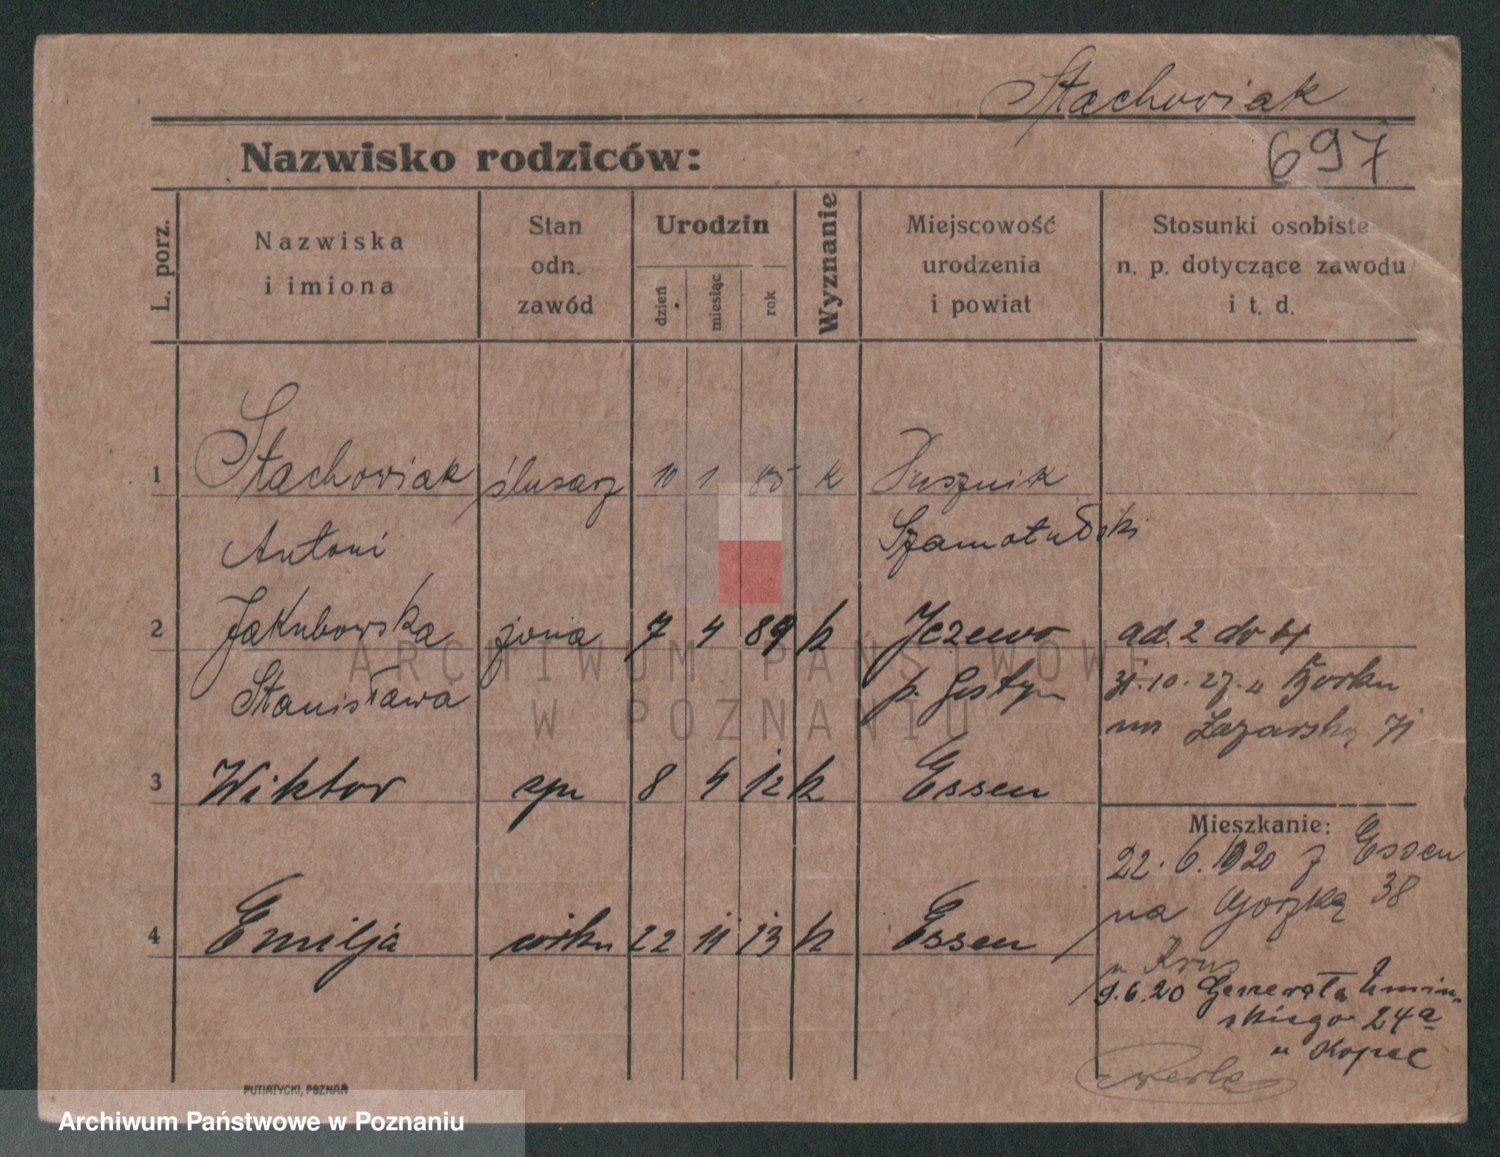 Stachowiak
Nazwisko rodziców: 697
L. porz.
Nazwiska
i imiona
Stan
odn.
zawód
Urodzin
dzień
miesiąc
rok
Wyznanie
Miejscowość
urodzenia
i powiat
Stosunki osobiste
n. p. dotyczące zawodu
i t. d.
1 Stachowiak ślusarz 10 1 85 k Dusznik
Antoni Szamotulski
2 Jakubowska żona 7 4 89 k Jeżewo ad. 2 do 4
Stanisława p. Gostyn 31.10.27 u Borku
Łazarska 71
3 Wiktor syn 8 4 12 k Essen
Mieszkanie:
22.6.1920 z Essen
na 38
4 Emilja 22 11 13 k Essen
u
9.6.20 Generała Umiń-
skiego 24a
u Kopec
PUTIATYCKI, POZNAŃ
ARCHIWUM PAŃSTWOWE
W POZNANIU
Archiwum Państwowe w Poznaniu